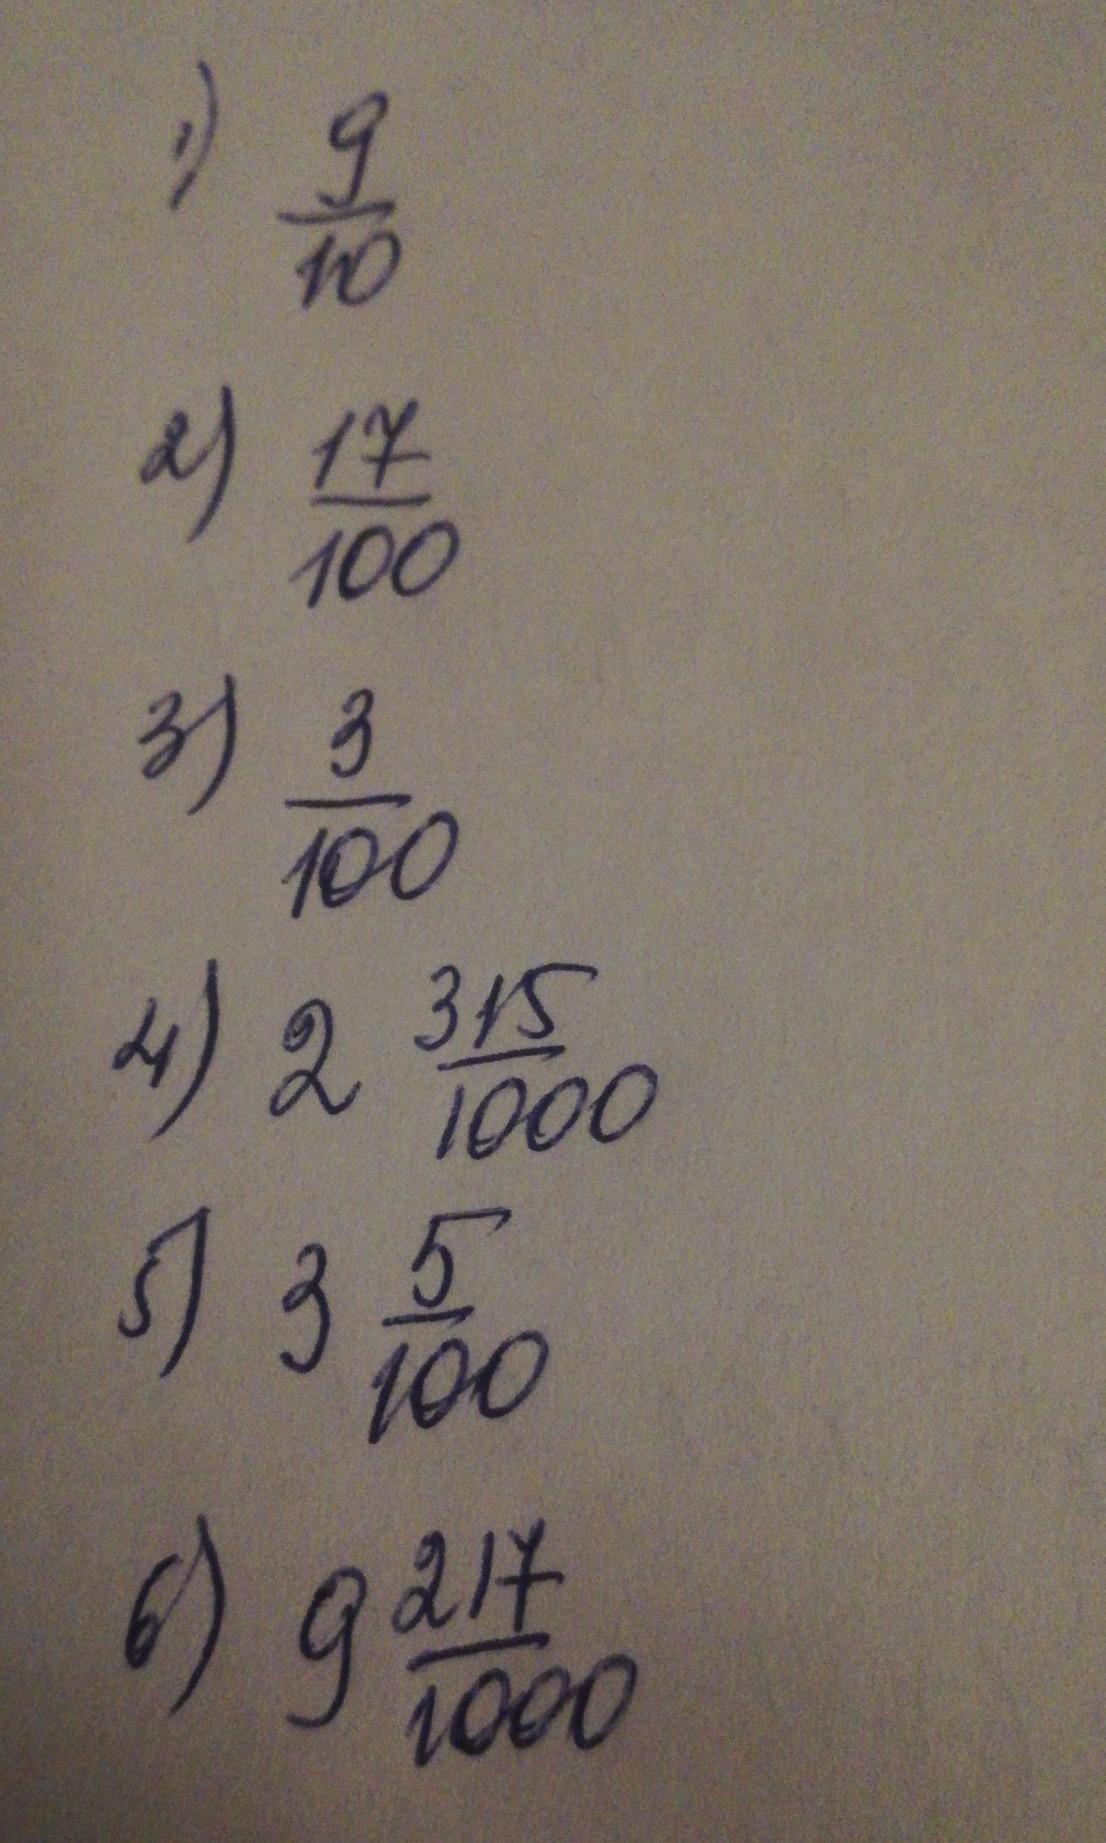 1) 9/10
2) 17/100
3) 3/100
4) 2 315/1000
5) 3 5/100
6) 9 217/1000